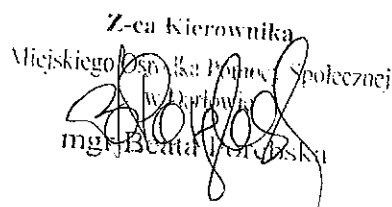 Z-ca Kierownika
Miejskiego Ośrodka Pomocy Społecznej
w Darłowie
mgr Beata